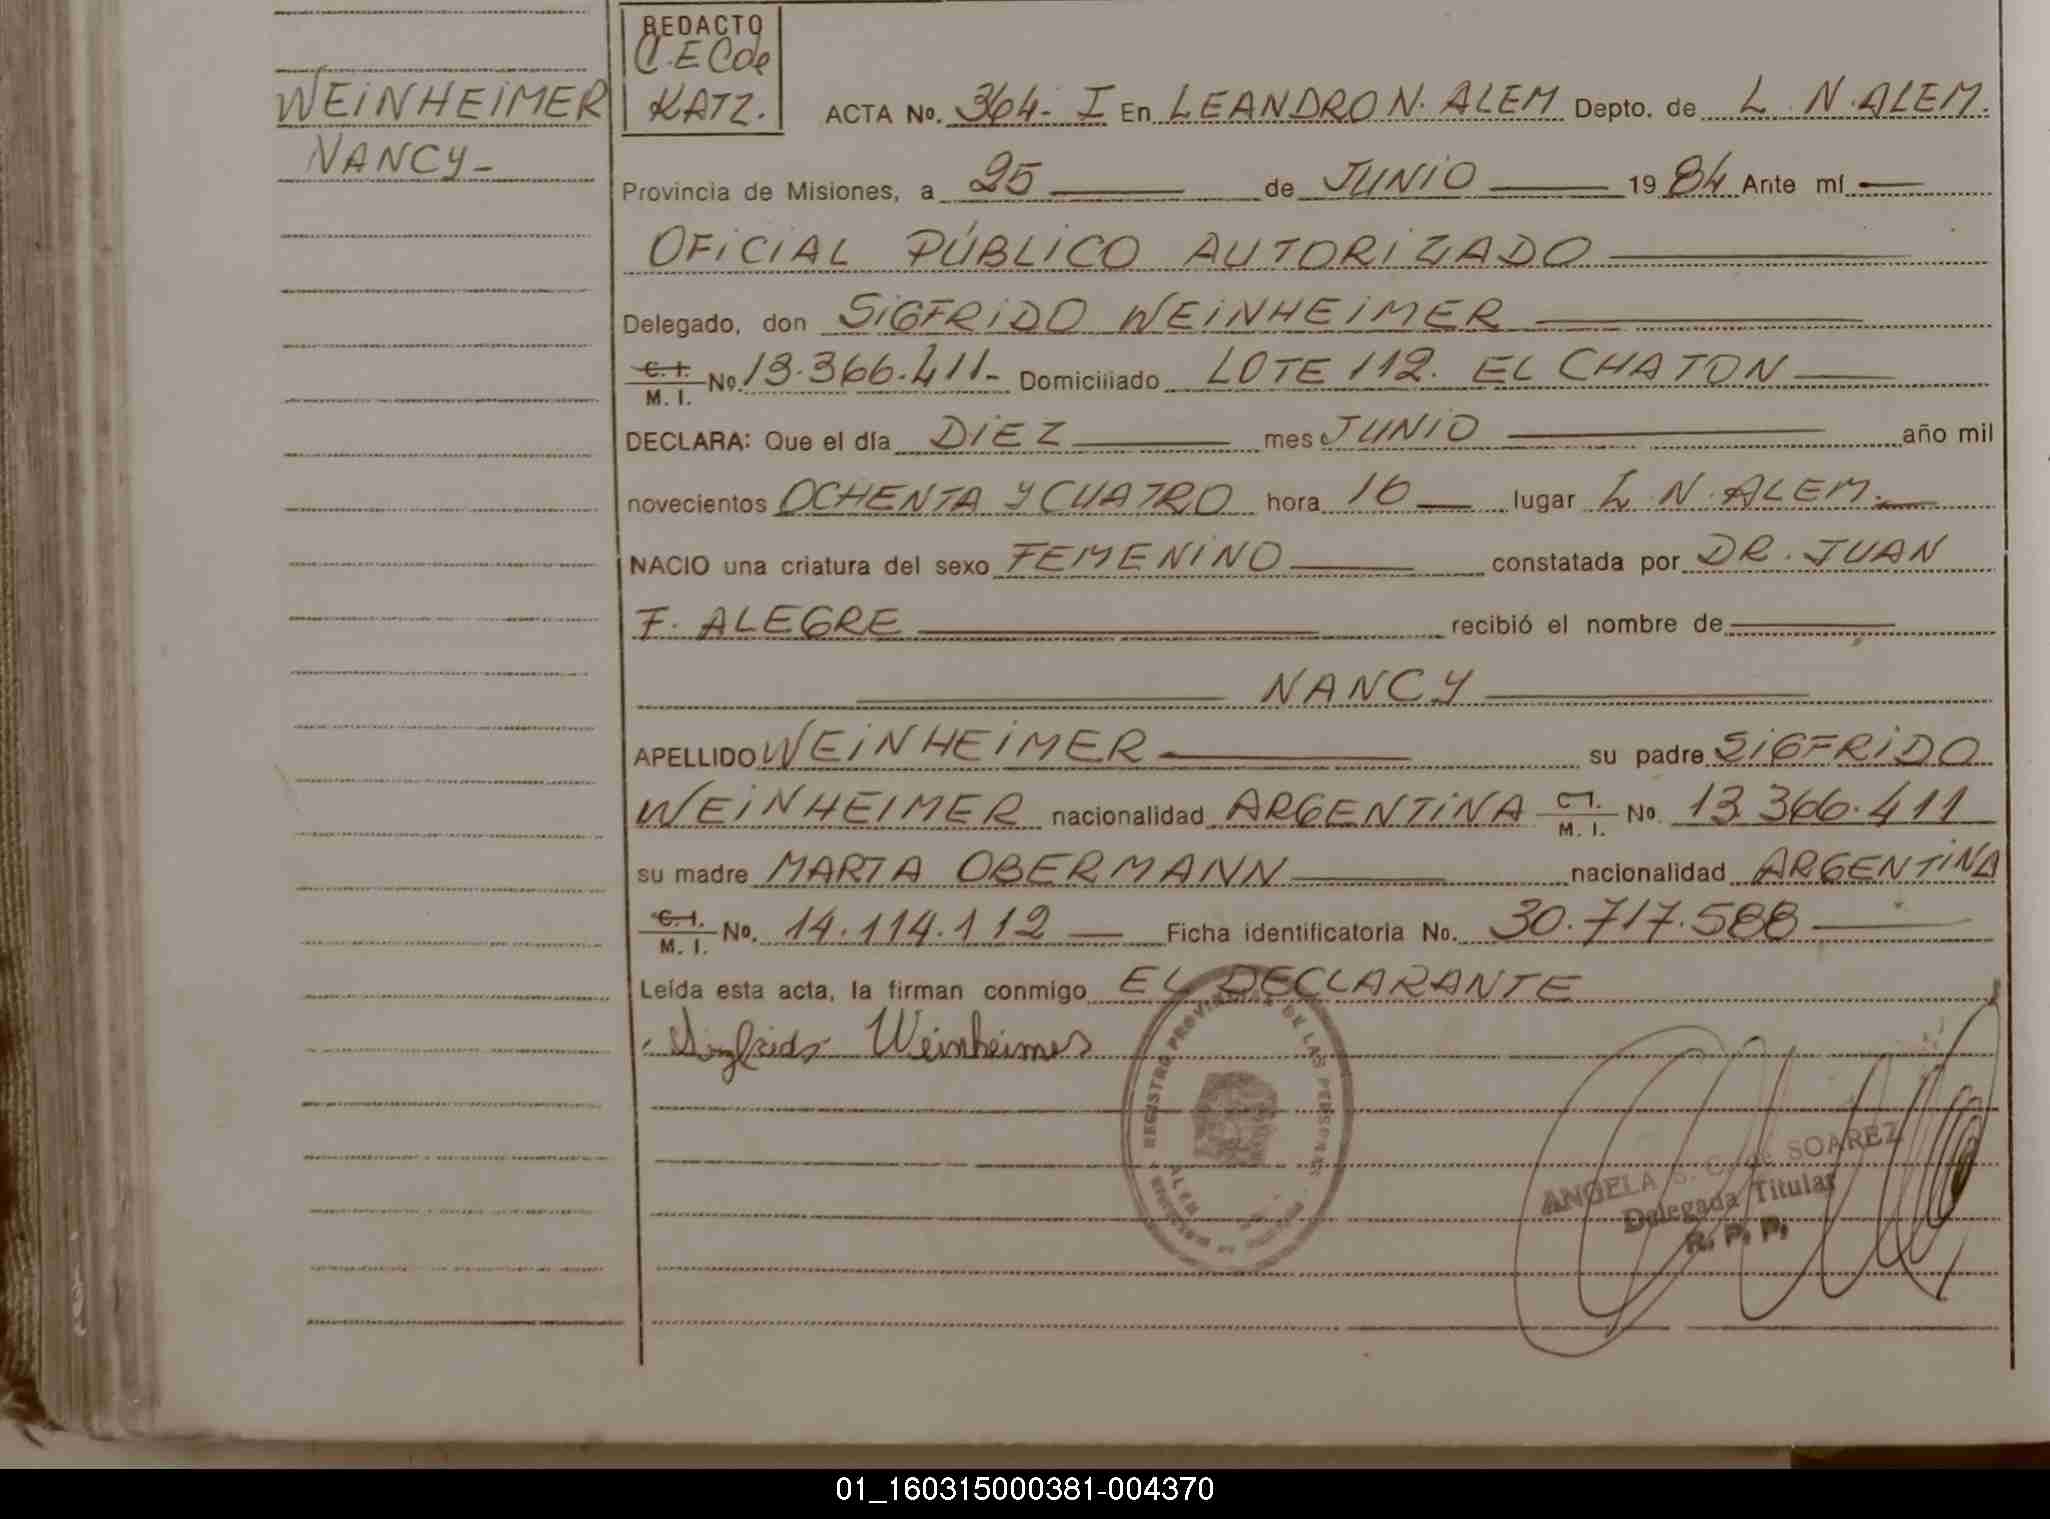 REDACTO
C. E C de
KATZ.
WEINHEIMER
NANCY-
ACTA No. 364- I En LEANDRO N. ALEM Depto. de L. N. ALEM.
Provincia de Misiones, a 25 de JUNIO 1984 Ante mí
OFICIAL PÚBLICO AUTORIZADO
Delegado, don SIGFRIDO WEINHEIMER
C. I. M. I. No 13.366.411- Domiciliado LOTE 112. EL CHATON
DECLARA: Que el día DIEZ mes JUNIO año mil
novecientos OCHENTA Y CUATRO hora 16 lugar L. N. ALEM.
NACIO una criatura del sexo FEMENINO constatada por DR. JUAN
F. ALEGRE recibió el nombre de
NANCY
APELLIDO WEINHEIMER su padre SIGFRIDO
WEINHEIMER nacionalidad ARGENTINA C. I. M. I. No. 13.366.411
su madre MARTA OBERMANN nacionalidad ARGENTINA
C. I. M. I. No. 14.114.112 Ficha identificatoria No. 30.717.588
Leída esta acta, la firman conmigo EL DECLARANTE
Sigfrido Weinheimer
REGISTRO PROVINCIAL DE LAS PERSONAS
ALEM
MISIONES
ANGELA S. C. de SOAREZ
Delegada Titular
R. P. P.
01_160315000381-004370